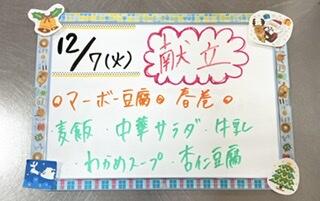 12/7(火) 献立
○マーボー豆腐○春巻○
・麦飯・中華サラダ・牛乳
・わかめスープ・杏仁豆腐